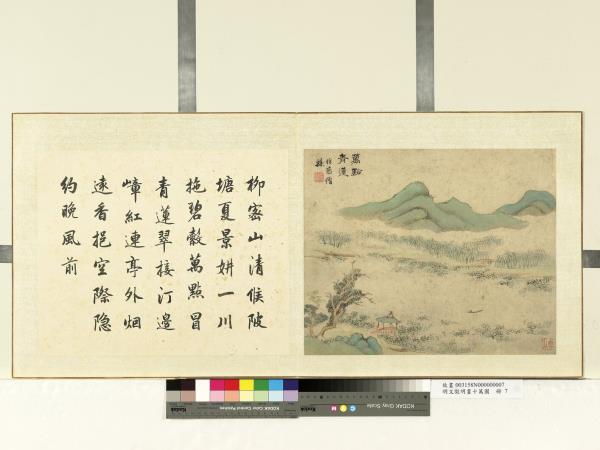 柳密山清候陂
塘夏景妍一川
拖碧縠萬點冒
青蓮翠接汀邊
嶂紅連亭外烟
遠香挹空際隐
約晚風前
萬點
青蓮
故畫 003158N000000007
畫十萬圖 冊 7
Kodak
KODAK Color Control Patches
KODAK Gray Scale